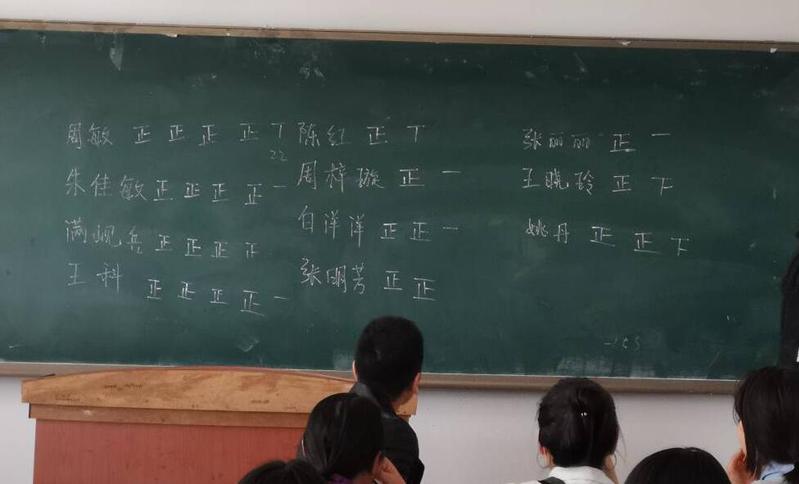 周敏 正 正 正 正 丅
22
朱佳敏 正 正 正 正 一
满岘兵 正 正 正 正
王科 正 正 正 正 一
陈红 正 丅
周梓璇 正 一
白洋洋 正 正 一
张明芳 正 正
张丽丽 正 一
王晓玲 正 下
姚丹 正 正 下